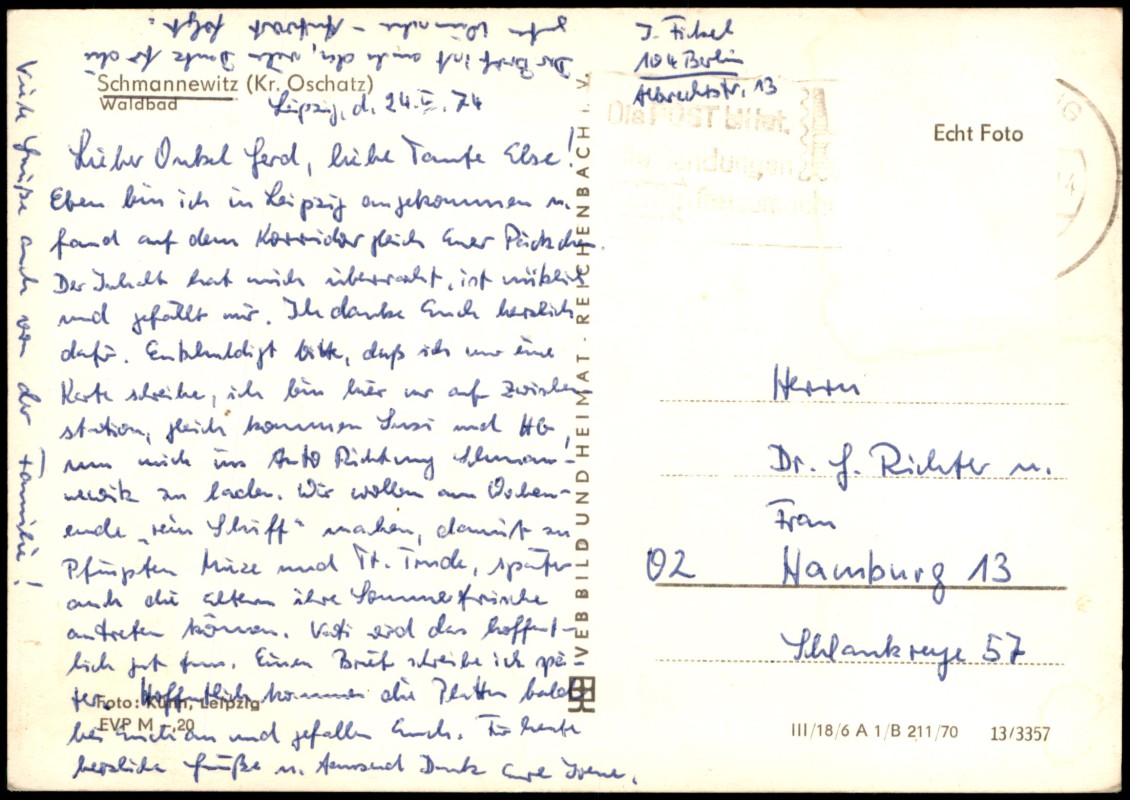 Schmannewitz (Kr. Oschatz)
Waldbad
Leipzig, d. 24. V. 74
Lieber Onkel Gerd, liebe Tante Else!
Eben bin ich in Leipzig angekommen u.
fand auf dem Korridor gleich Euer Päckchen.
Der Inhalt hat mich überrascht, ist nützlich
und gefällt mir. Ich danke Euch herzlich
dafür. Entschuldigt bitte, daß ich nur eine
Karte schreibe, ich bin hier nur auf Zwischen-
station, gleich kommen Susi und HG,
um mich ins Auto Richtung Schman-
newitz zu laden. Wir wollen am Wochen-
ende „rein Schiff" machen, damit zu
Pfingsten Muze und Tt. Trude, später
auch die Eltern ihre Sommerfrische
antreten können. Vati wird das hoffent-
lich gut tun. Einen Brief schreibe ich spä-
ter. Hoffentlich kommen die Platten bald
bei Euch an und gefallen Euch. Für heute
herzliche Grüße u. tausend Dank Eure Irene.
Viele Grüße auch von der Familie!
Der Brief ist auch da, vielen Dank für die
guten Wünsche – Antwort folgt.
Foto: Kühn, Leipzig
EVP M -,20
VEB BILD UND HEIMAT · REICHENBACH i. V.
I. Fickel
104 Berlin
Albrechtstr. 13
Die POST bittet,
Echt Foto
Herrn
Dr. G. Richter u.
Frau
02 Hamburg 13
Schlankreye 57
III/18/6 A 1/B 211/70 13/3357